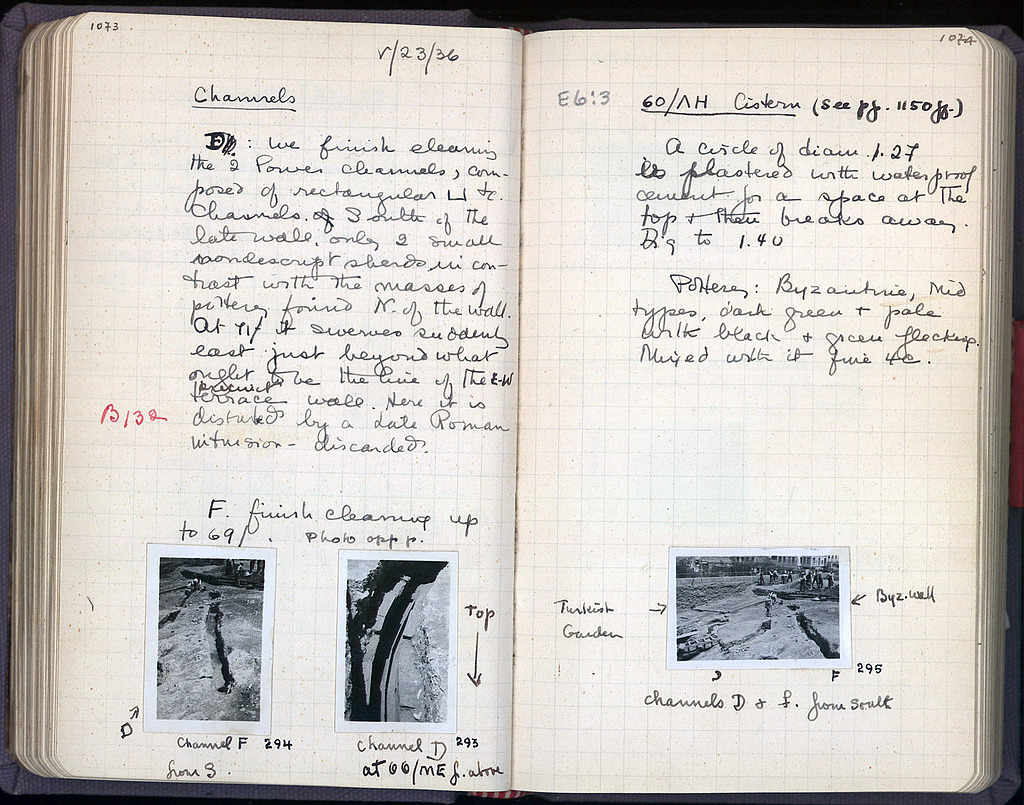 1073
V/23/36
Channels
D: we finish cleaning
the 2 Power channels, com-
posed of rectangular ⊔ tc.
channels. South of the
late wall, only 2 small
nondescript sherds, in con-
trast with the masses of
pottery found N. of the wall.
At it swerves suddenly
east just beyond what
ought to be the line of the E-W
precinct
terrace wall. Here it is
B/32
disturbed by a Late Roman
intrusion - discarded.
F. finish cleaning up
to 69/ . Photo opp p.
Top
D
Channel F 294
from S.
Channel D 293
at 66/ME f. above
1074
E6:3
60/ΛH Cistern (see pp. 1150ff.)
A circle of diam. 1.27
is plastered with waterproof
cement for a space at the
top + then breaks away.
Dig to 1.40
Pottery: Byzantine, Mid
types, dark green + pale
with black + green flecking.
Mixed with it fine 4c.
Turkish
Garden
Byz. wall
D F 295
channels D & F. from South